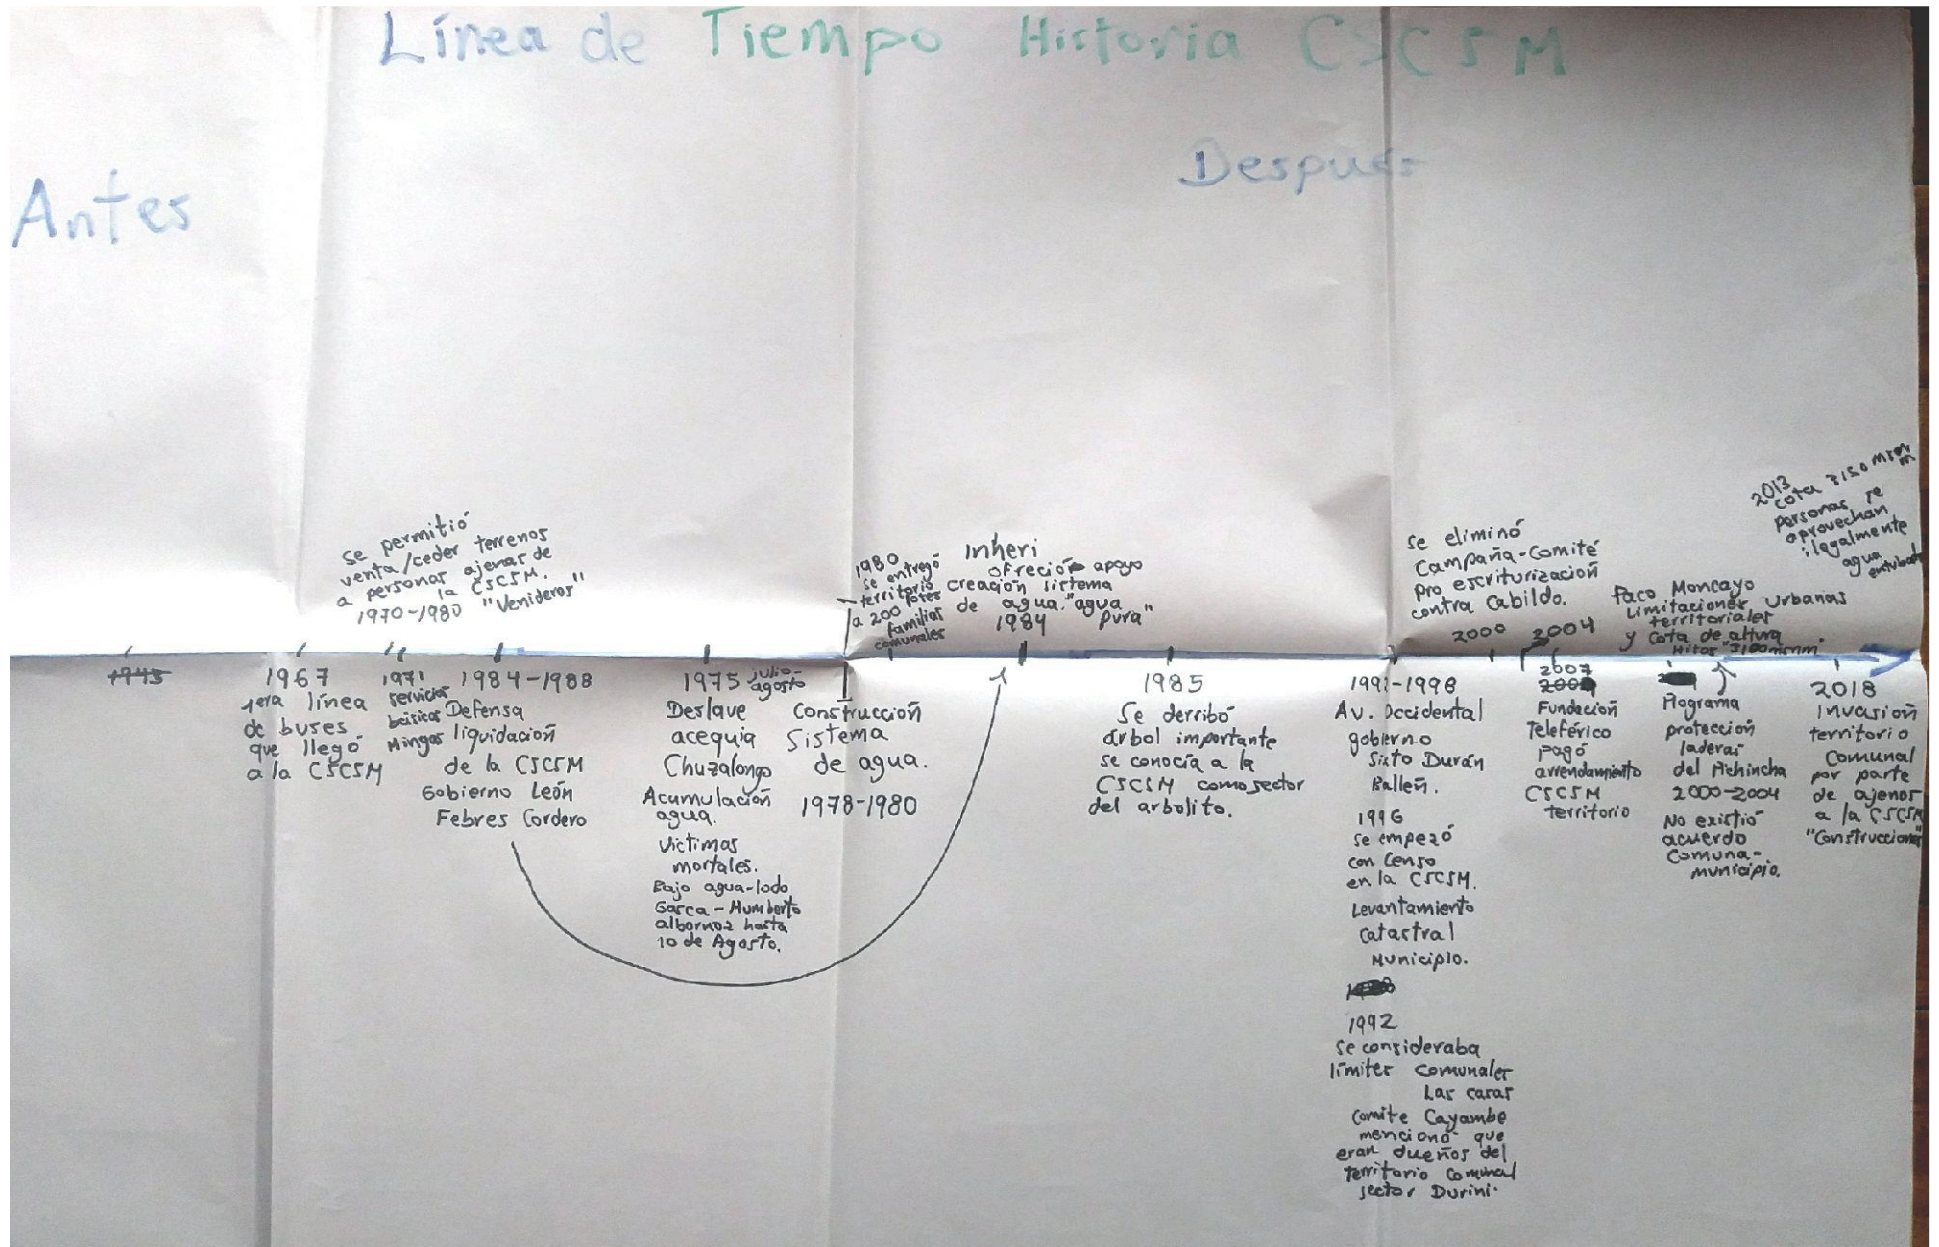 Línea de Tiempo Historia CSCSM
Antes
Después
se permitió
venta/ceder terrenos
a personas ajenas de
la CSCSM.
1970-1980 "Venideros"
1980
se entregó
territorio
a 200 lotes
familias
comunales
Inheri
ofreció apoyo
creación sistema
de agua. "agua
pura"
1984
se eliminó
Campaña-Comité
pro escriturización
contra Cabildo.
2000
2004
Paco Moncayo
Limitaciones urbanas
territoriales
y Cota de altura
Hitos "3100msnm"
2013
cota 3150 msnm
personas se
aprovechan
ilegalmente
agua
entubada
1945
1967
1era línea
de buses
que llegó
a la CSCSM
1971
servicios
básicos
Mingas
1984-1988
Defensa
liquidación
de la CSCSM
Gobierno León
Febres Cordero
1975 julio-
agosto
Deslave
acequia
Chuzalongo
Acumulación
agua.
Victimas
mortales.
Bajo agua-lodo
Gasca-Humberto
albornoz hasta
10 de Agosto.
Construcción
Sistema
de agua.
1978-1980
1985
Se derribó
árbol importante
se conocía a la
CSCSM como sector
del arbolito.
1992-1998
Av. Occidental
gobierno
Sixto Durán
Ballén.
1996
se empezó
con censo
en la CSCSM.
Levantamiento
catastral
Municipio.
1992
se consideraba
límites comunales
Las casas
comite Cayambe
mencionó que
eran dueños del
territorio comunal
sector Durini.
2007
Fundación
Teleférico
pagó
arrendamiento
CSCSM
territorio
Programa
protección
laderas
del Pichincha
2000-2004
No existió
acuerdo
Comuna-
municipio.
2018
Invasión
territorio
Comunal
por parte
de ajenos
a la CSCSM
"Construcciones"